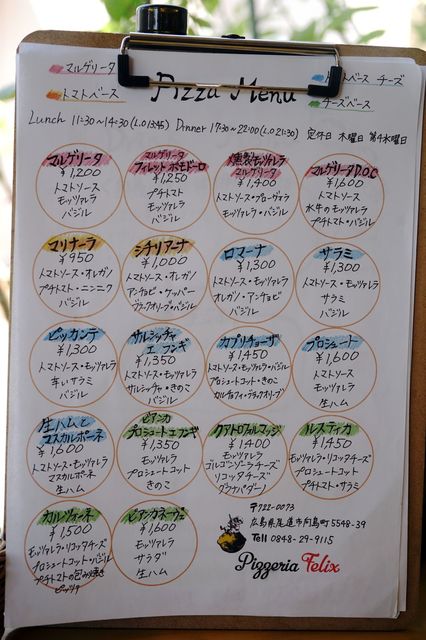 Pizza Menu
マルゲリータ
トマトベース
トマトベース チーズ
チーズベース
Lunch 11:30~14:30 (L.O 13:45) Dinner 17:30~22:00 (L.O 21:30) 定休日 木曜日 第4水曜日
マルゲリータ
¥1,200
トマトソース
モッツァレラ
バジル
マルゲリータ
フィレット ポモドーロ
¥1,250
プチトマト
モッツァレラ
バジル
燻製モッツァレラ
マルゲリータ
¥1,400
モッツァレラ・バジル
マルゲリータD.O.C
¥1,600
トマトソース
水牛のモッツァレラ
プチトマト・バジル
マリナーラ
¥950
トマトソース・オレガノ
プチトマト・ニンニク
バジル
シチリアーナ
¥1,000
トマトソース・オレガノ
アンチョビ・ケッパー
ブラックオリーブ・バジル
ロマーナ
¥1,300
トマトソース・モッツァレラ
オレガノ・アンチョビ
バジル
サラミ
¥1,300
トマトソース・モッツァレラ
サラミ
バジル
ピッカンテ
¥1,300
トマトソース・モッツァレラ
辛いサラミ
バジル
サルシッチャ
エ フンギ
¥1,350
トマトソース・モッツァレラ
サルシッチャ・きのこ
バジル
カプリチョーザ
¥1,450
トマトソース・モッツァレラ・バジル
プロシュートコット・きのこ
カルチョフィ・ブラックオリーブ
プロシュート
¥1,600
トマトソース
モッツァレラ
生ハム
生ハムと
マスカルポーネ
¥1,600
トマトソース・モッツァレラ
マスカルポーネ
生ハム
ビアンカ
プロシュートエフンギ
¥1,350
モッツァレラ
プロシュートコット
きのこ
クアトロフォルマッジ
¥1,400
モッツァレラ
ゴルゴンゾーラチーズ
リコッタチーズ
グラナパダーノ
ルスティカ
¥1,450
モッツァレラ・リコッタチーズ
プロシュートコット
プチトマト・サラミ
カルツォーネ
¥1,500
モッツァレラ・リコッタチーズ
プロシュートコット・バジル
プチトマトの包み焼き
ピッツァ
ビアンカネーヴェ
¥1,600
モッツァレラ
サラダ
生ハム
〒722-0073
広島県尾道市向島町5548-39
Tell 0848-29-9115
Pizzeria Felix